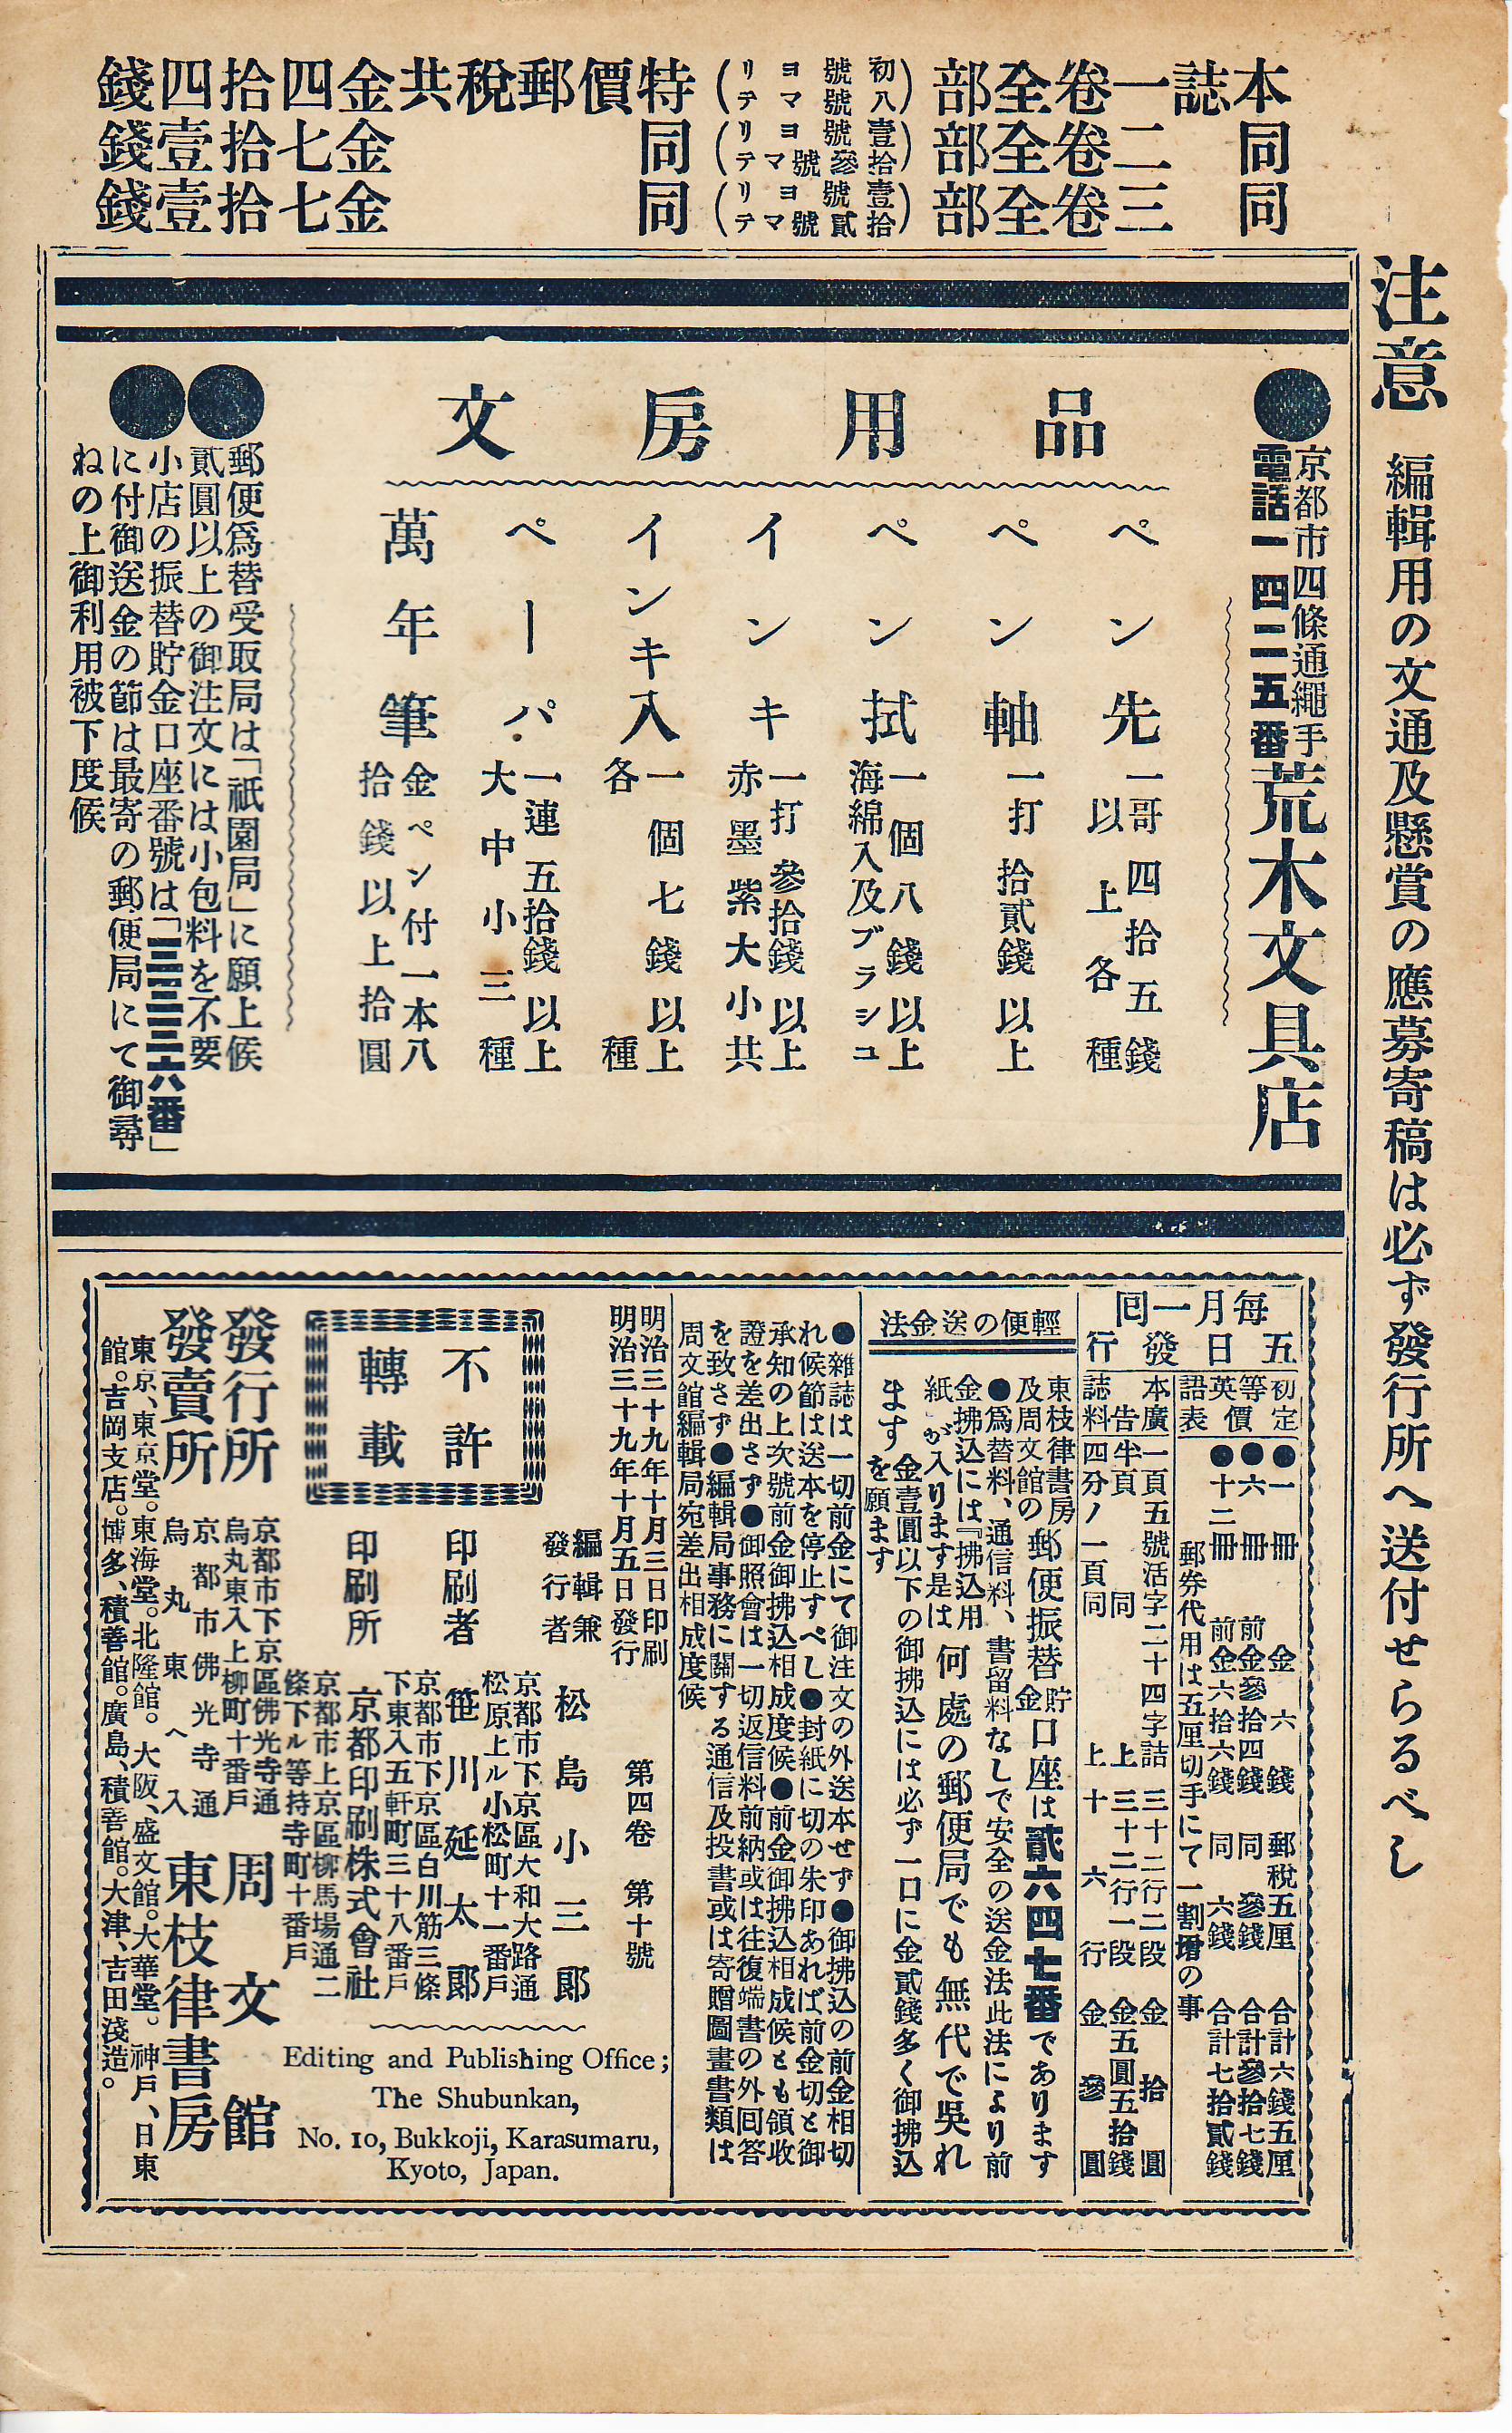 本誌一卷全部（初號ヨリ八號マデ）特價郵稅共金四拾四錢
同二卷全部（壹號ヨリ拾參號マデ）同金七拾壹錢
同三卷全部（壹號ヨリ拾貳號マデ）同金七拾壹錢
注意 編輯用の文通及懸賞の應募寄稿は必ず發行所へ送付せらるべし
●京都市四條通繩手
電話一四二五番
荒木文具店
文房用品
ペン先 一哥四拾五錢以上各種
ペン軸 一打拾貳錢以上
ペン拭 一個八錢以上
海綿入及ブラシユ
インキ 一打參拾錢以上
赤墨紫大小共
インキ入 一個七錢以上
各種
ペーパ 一連五拾錢以上
大中小三種
萬年筆 金ペン付一本八
拾錢以上拾圓
●郵便爲替受取局は「祇園局」に願上候
貳圓以上の御注文には小包料を不要
●小店の振替貯金口座番號は「三三三六番」
に付御送金の節は最寄の郵便局にて御尋
ねの上御利用被下度候
每月一回
五日發行
初等英語
定價表
●一冊 金六錢 郵稅五厘 合計六錢五厘
●六冊 前金參拾四錢 同參錢 合計參拾七錢
●十二冊 前金六拾六錢 同六錢 合計七拾貳錢
郵券代用は五厘切手にて一割增の事
本誌廣告料
一頁五號活字二十四字詰三十二行二段金拾圓
半頁同上三十二行一段金五圓五拾錢
四分ノ一頁同上十六行金參圓
輕便の送金法
東枝律書房
及周文館の郵便振替貯金口座は貳六四七番であります
●爲替料、通信料、書留料なしで安全の送金法此法により前
金拂込には『拂込用
紙』が入ります是は何處の郵便局でも無代で吳れ
ます 金壹圓以下の御拂込には必ず一口に金貳錢多く御拂込
を願ます
●雜誌は一切前金にて御注文の外送本せず●御拂込の前金相切
れ候節は送本を停止すべし●封紙に切の朱印あれば前金切と御
承知の上次號前金御拂込相成度候●前金御拂込相成候とも領收
證を差出さず●御照會は一切返信料前納或は往復端書の外回答
を致さず●編輯局事務に關する通信及投書或は寄贈圖畫書類は
周文館編輯局宛差出相成度候
明治三十九年十月三日印刷
明治三十九年十月五日發行
第四卷第十號
不許轉載
編輯兼
發行者
京都市下京區大和大路通
松原上ル小松町十一番戶
松島小三郞
印刷者
京都市下京區白川筋三條
下東入五軒町三十八番戶
笹川延太郞
印刷所
京都市上京區柳馬場通二
條下ル等持寺町十番戶
京都印刷株式會社
發行所
京都市下京區佛光寺通
烏丸東入上柳町十番戶
周文館
發賣所
京都市佛光寺通
烏丸東へ入
東枝律書房
東京、東京堂。東海堂。北隆館。大阪、盛文館。大華堂。神戶、日東
館。吉岡支店。博多、積善館。廣島、積善館。大津、吉田淺造。
Editing and Publishing Office;
The Shubunkan,
No. 10, Bukkoji, Karasumaru,
Kyoto, Japan.